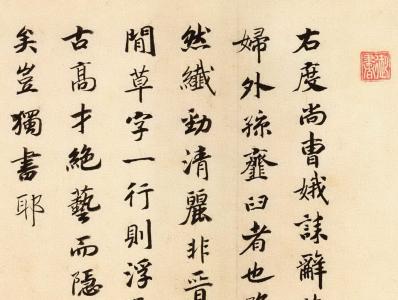 御書
右度尚曹娥誄辭
婦外孫齏臼者也
然纖勁清麗非晉
閒草字一行則浮
古高才絕藝而隱
矣豈獨書耶